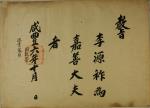 敎旨
李源祚爲
嘉善大夫
者
咸豐六年十月 日